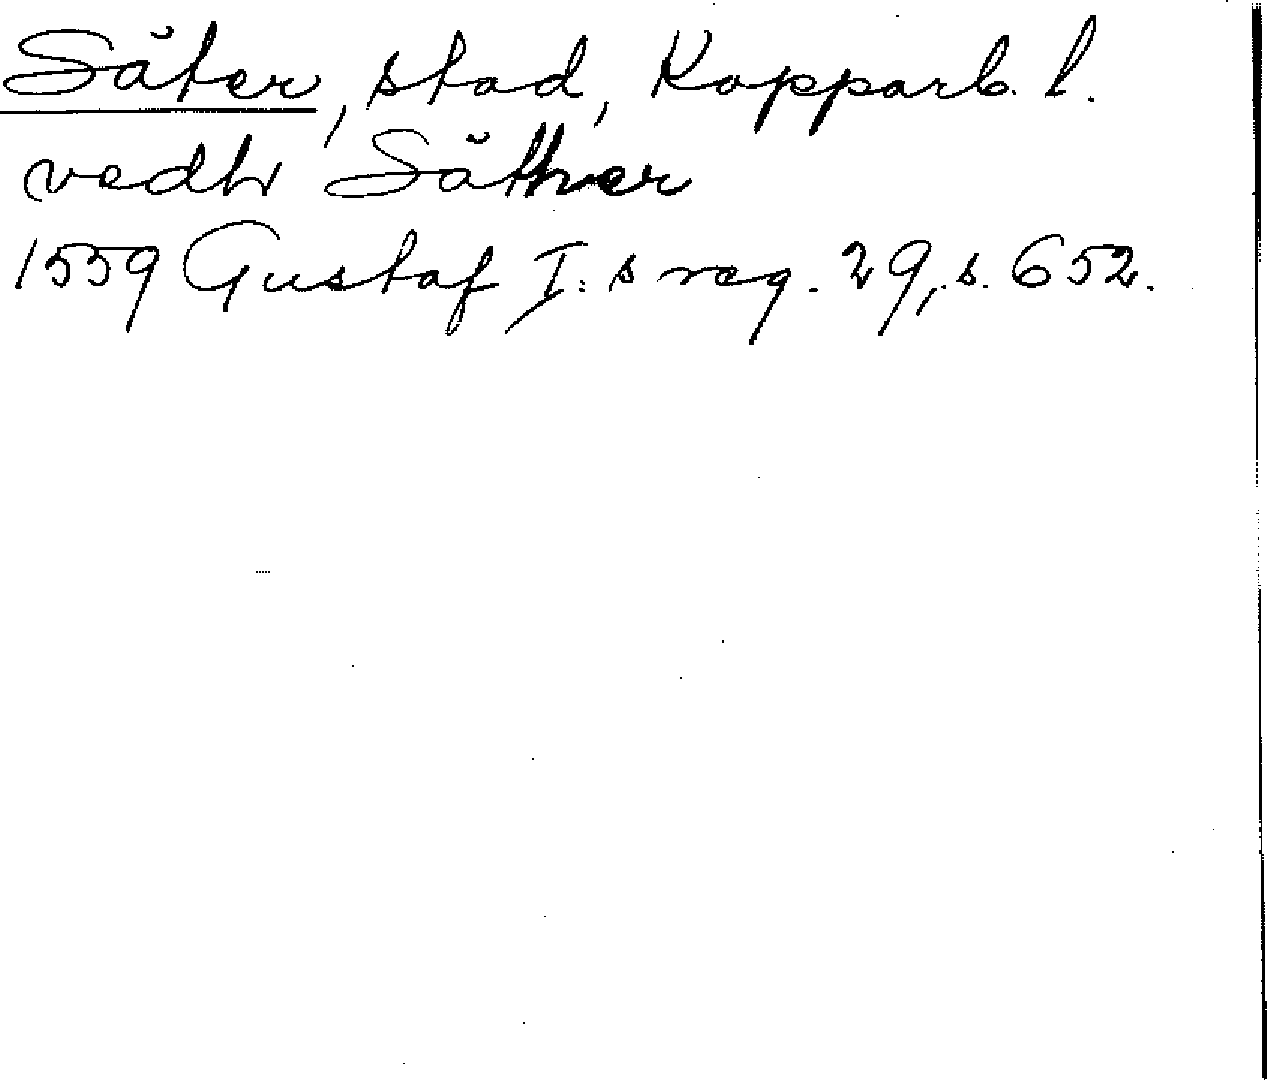 Säter, stad, Kopparb. l.
vedh Säther
1559 Gustaf I:s reg. 29, s. 652.